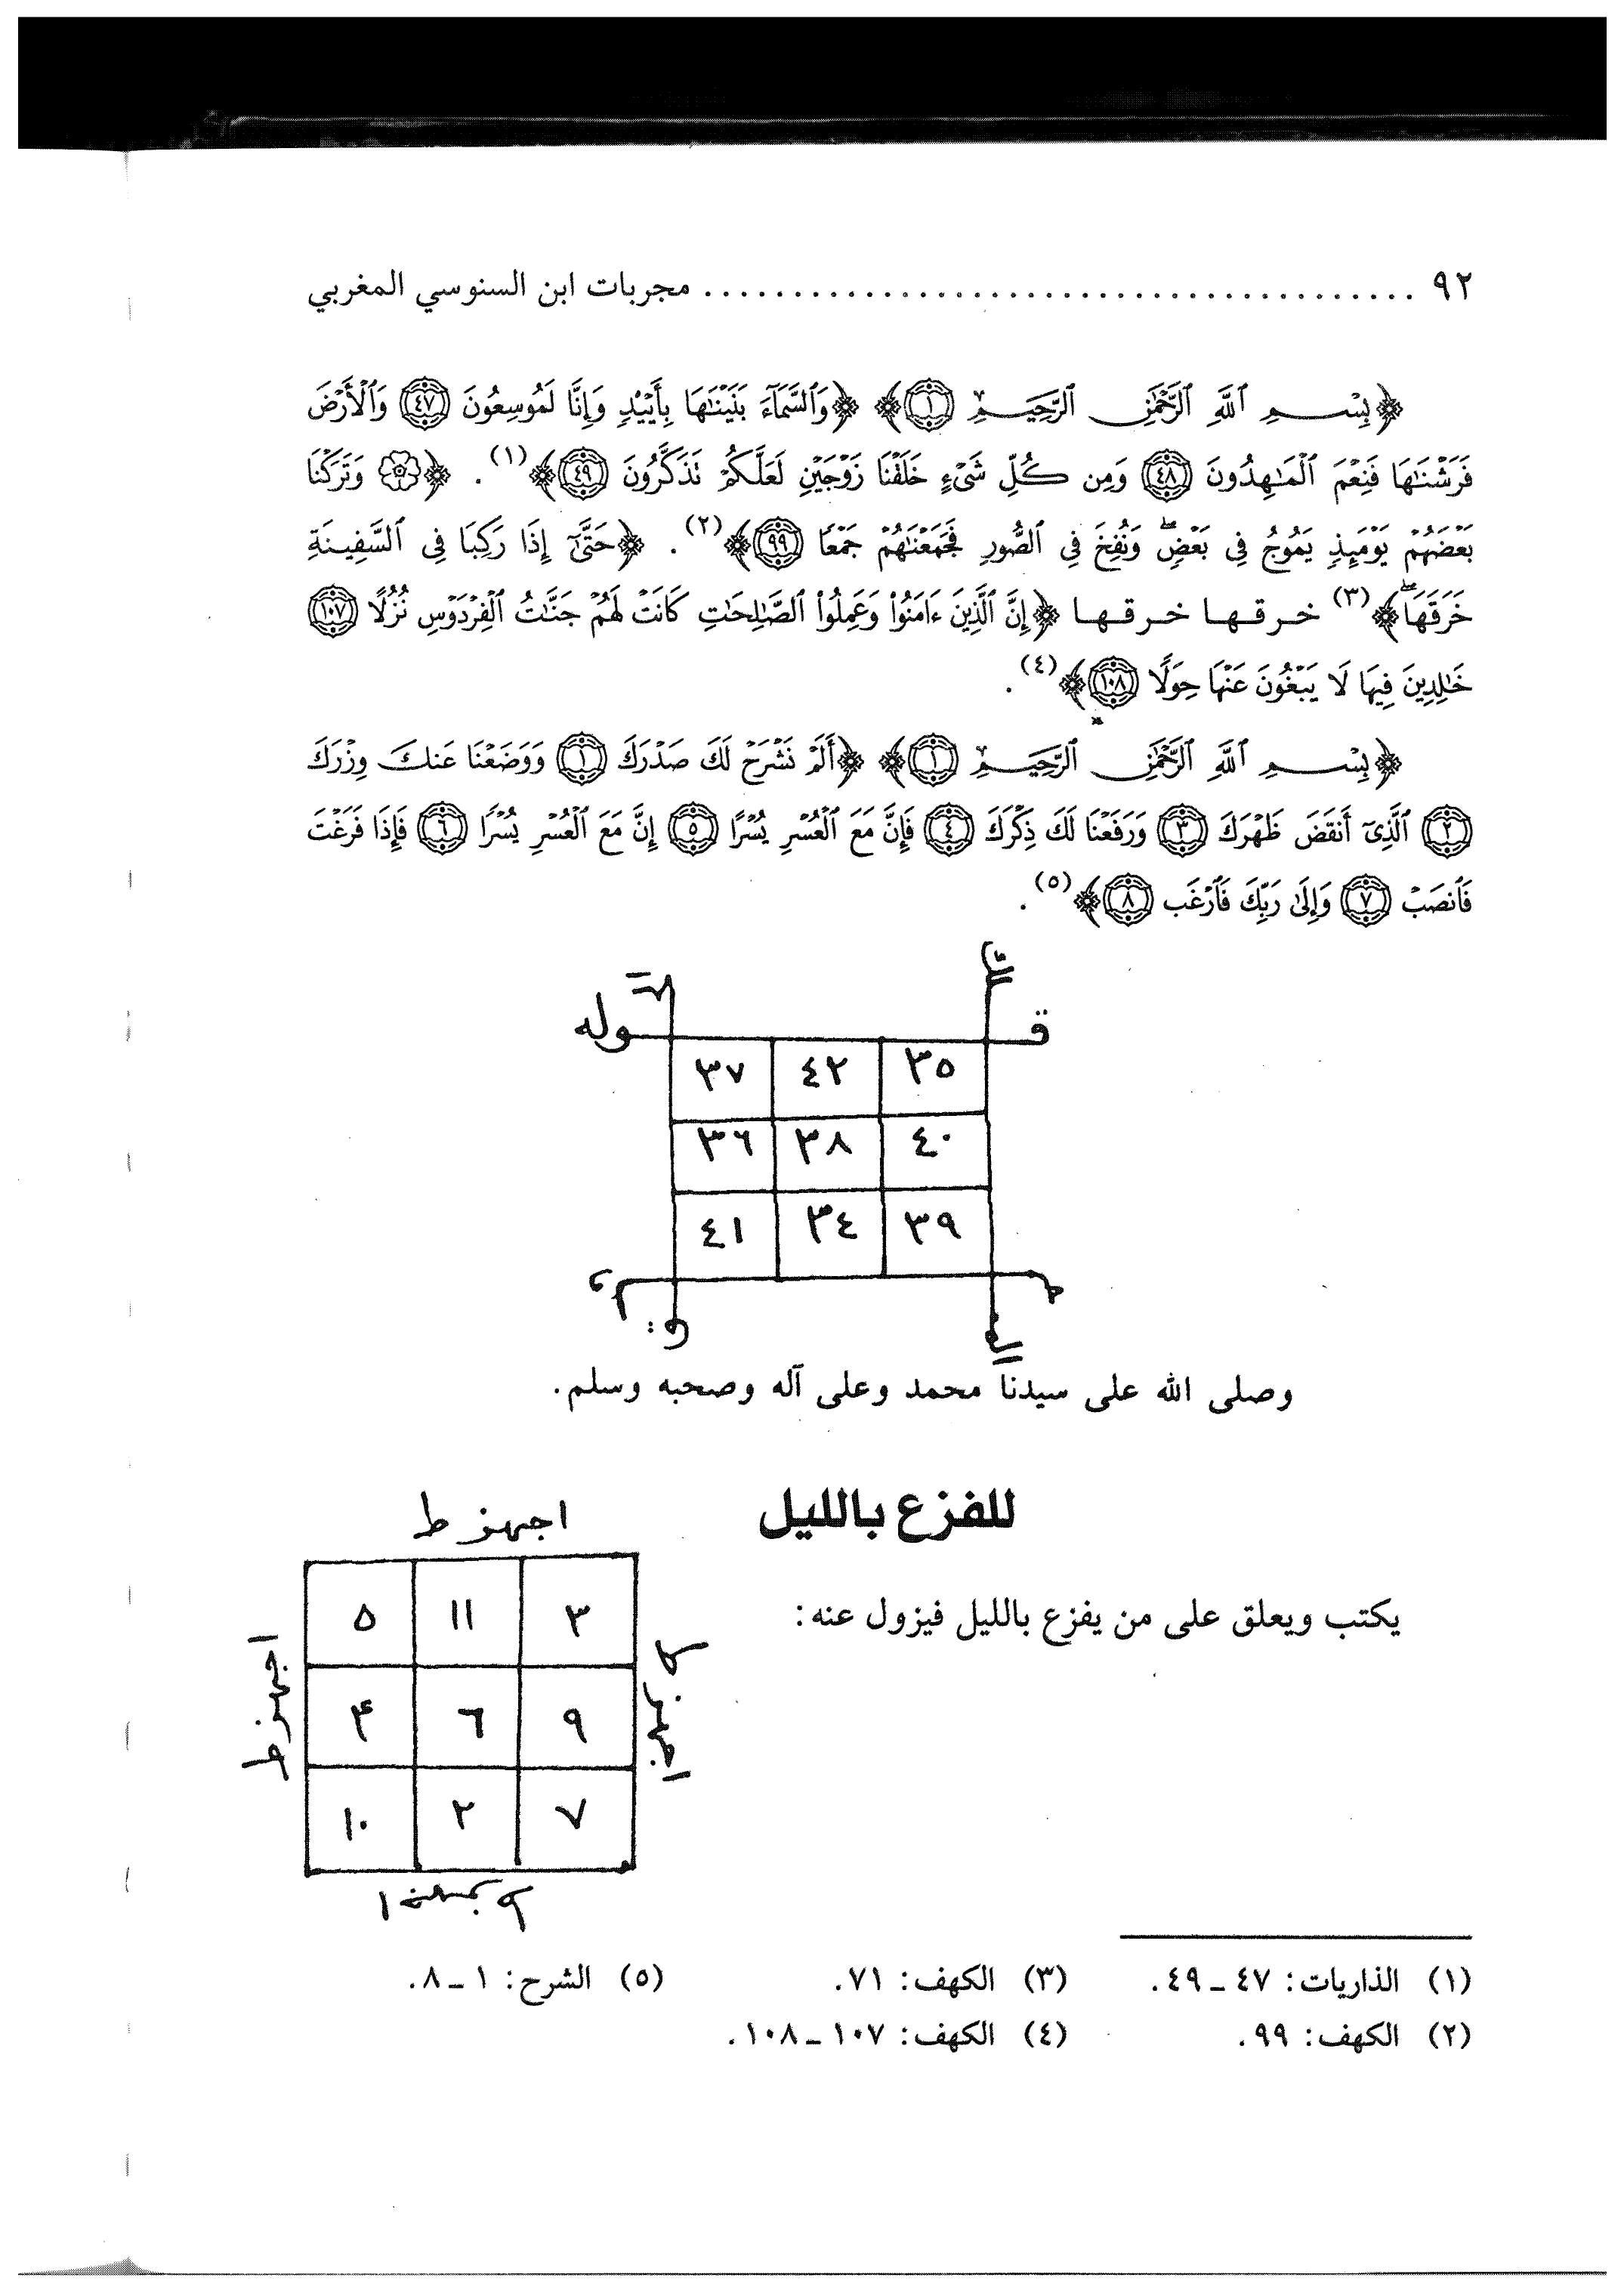 ٩٢ ........................................ مجربات ابن السنوسي المغربي
﴿بِسْمِ ٱللَّهِ ٱلرَّحْمَٰنِ ٱلرَّحِيمِ ١﴾ ﴿وَٱلسَّمَآءَ بَنَيْنَٰهَا بِأَيْيْدٍ وَإِنَّا لَمُوسِعُونَ ٤٧ وَٱلْأَرْضَ
فَرَشْنَٰهَا فَنِعْمَ ٱلْمَٰهِدُونَ ٤٨ وَمِن كُلِّ شَىْءٍ خَلَقْنَا زَوْجَيْنِ لَعَلَّكُمْ تَذَكَّرُونَ ٤٩﴾(١). ﴿۞ وَتَرَكْنَا
بَعْضَهُمْ يَوْمَئِذٍ يَمُوجُ فِى بَعْضٍ ۖ وَنُفِخَ فِى ٱلصُّورِ فَجَمَعْنَٰهُمْ جَمْعًا ٩٩﴾(٢). ﴿حَتَّىٰٓ إِذَا رَكِبَا فِى ٱلسَّفِينَةِ
خَرَقَهَا ۖ﴾(٣) خرقها خرقها ﴿إِنَّ ٱلَّذِينَ ءَامَنُوا۟ وَعَمِلُوا۟ ٱلصَّٰلِحَٰتِ كَانَتْ لَهُمْ جَنَّٰتُ ٱلْفِرْدَوْسِ نُزُلًا ١٠٧
خَٰلِدِينَ فِيهَا لَا يَبْغُونَ عَنْهَا حِوَلًا ١٠٨﴾(٤).
﴿بِسْمِ ٱللَّهِ ٱلرَّحْمَٰنِ ٱلرَّحِيمِ ١﴾ ﴿أَلَمْ نَشْرَحْ لَكَ صَدْرَكَ ١ وَوَضَعْنَا عَنكَ وِزْرَكَ
٢ ٱلَّذِىٓ أَنقَضَ ظَهْرَكَ ٣ وَرَفَعْنَا لَكَ ذِكْرَكَ ٤ فَإِنَّ مَعَ ٱلْعُسْرِ يُسْرًا ٥ إِنَّ مَعَ ٱلْعُسْرِ يُسْرًا ٦ فَإِذَا فَرَغْتَ
فَٱنصَبْ ٧ وَإِلَىٰ رَبِّكَ فَٱرْغَب ٨﴾(٥).
قـ وله
٣٥ ٤٢ ٣٧
٤٠ ٣٨ ٣٦
٣٩ ٣٤ ٤١
وصلى الله على سيدنا محمد وعلى آله وصحبه وسلم.
للفزع بالليل
يكتب ويعلق على من يفزع بالليل فيزول عنه:
اجهزط
٣ ١١ ٥
اجهزط
اجهزط
٩ ٦ ٤
٧ ٢ ١٠
(١) الذاريات: ٤٧ ـ ٤٩. (٣) الكهف: ٧١. (٥) الشرح: ١ ـ ٨.
(٢) الكهف: ٩٩. (٤) الكهف: ١٠٧ ـ ١٠٨.